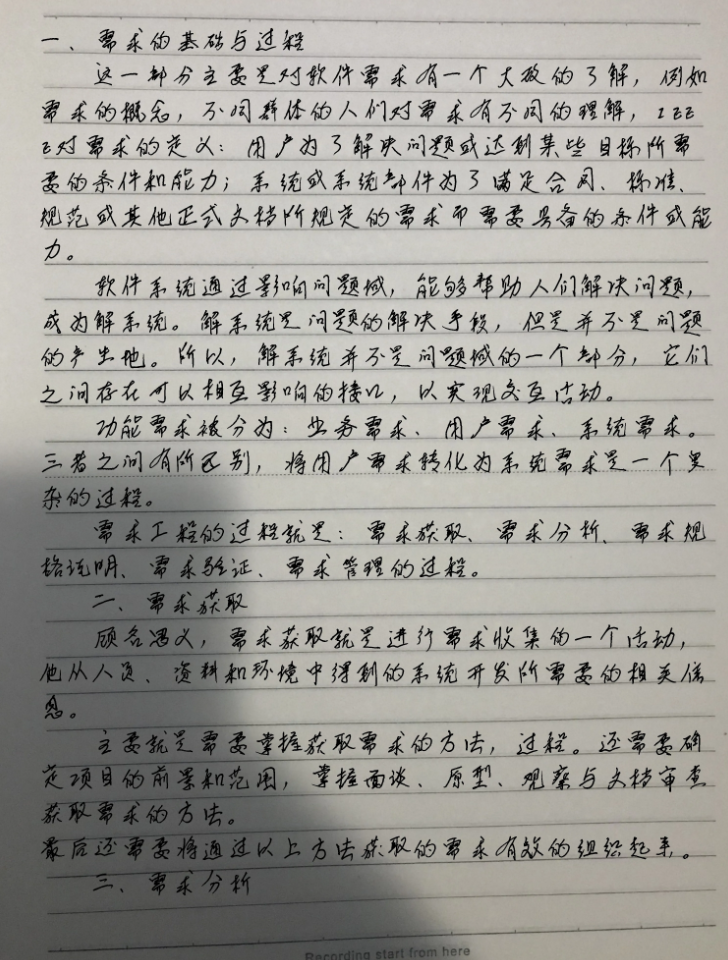 一、需求的基础与过程
这一部分主要是对软件需求有一个大致的了解，例如
需求的概念，不同群体的人们对需求有不同的理解，IEE
E对需求的定义：用户为了解决问题或达到某些目标所需
要的条件和能力；系统或系统部件为了满足合同、标准、
规范或其他正式文档所规定的需求而需要具备的条件或能
力。
软件系统通过影响问题域，能够帮助人们解决问题，
成为解系统。解系统是问题的解决手段，但是并不是问题
的产生地。所以，解系统并不是问题域的一个部分，它们
之间存在可以相互影响的接口，以实现交互活动。
功能需求被分为：业务需求、用户需求、系统需求。
三者之间有所区别，将用户需求转化为系统需求是一个复
杂的过程。
需求工程的过程就是：需求获取、需求分析、需求规
格说明、需求验证、需求管理的过程。
二、需求获取
顾名思义，需求获取就是进行需求收集的一个活动，
他从人员、资料和环境中得到的系统开发所需要的相关信
息。
主要就是需要掌握获取需求的方法，过程。还需要确
定项目的前景和范围，掌握面谈、原型、观察与文档审查
获取需求的方法。
最后还需要将通过以上方法获取的需求有效的组织起来。
三、需求分析
Recording start from here